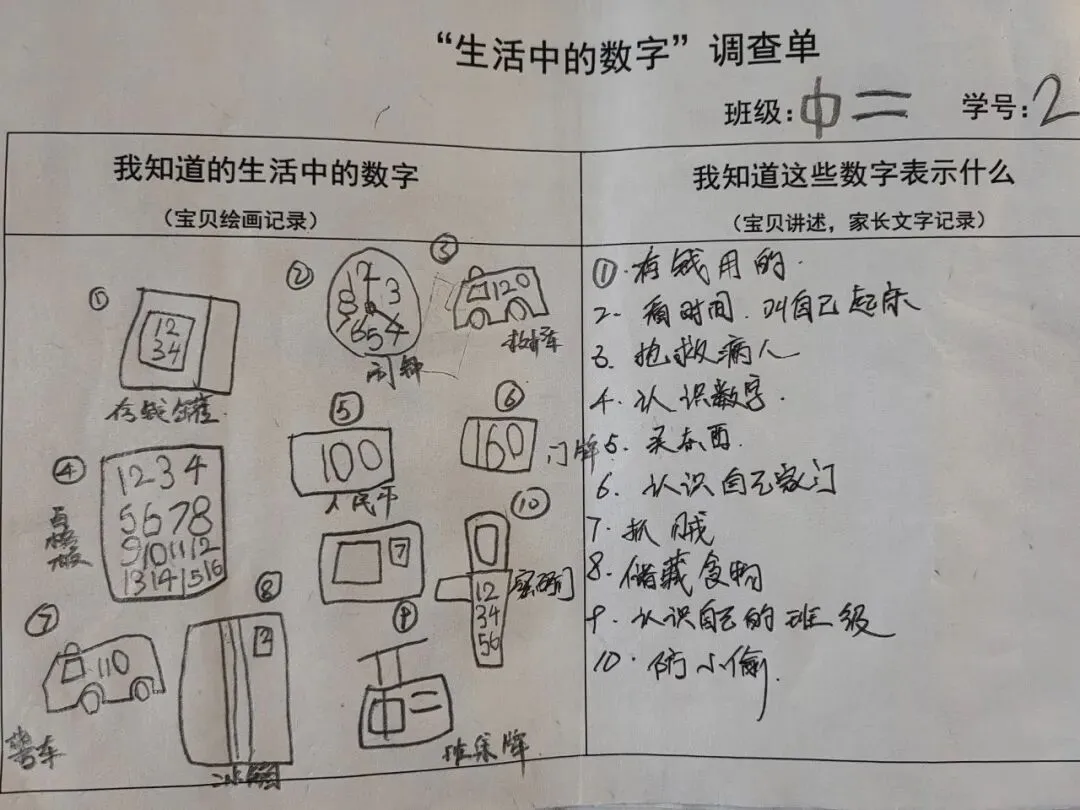 “生活中的数字”调查单
班级：中二 学号：2
我知道的生活中的数字
（宝贝绘画记录）
①
12
34
存钱罐
②
12
3
8
7654
闹钟
③
120
救护车
④
1234
5678
9101112
13141516
⑤
100
人民币
⑥
160
门牌
7
⑦
110
警车
⑧
2
冰箱
9
中二
班级牌
⑩
12
34
56
密码门
我知道这些数字表示什么
（宝贝讲述，家长文字记录）
①.存钱用的.
2.看时间.叫自己起床
3.抢救病人
4.认识数字.
5.买东西.
6.认识自己家门
7.抓贼
8.储藏食物
9.认识自己的班级
10.防小偷.